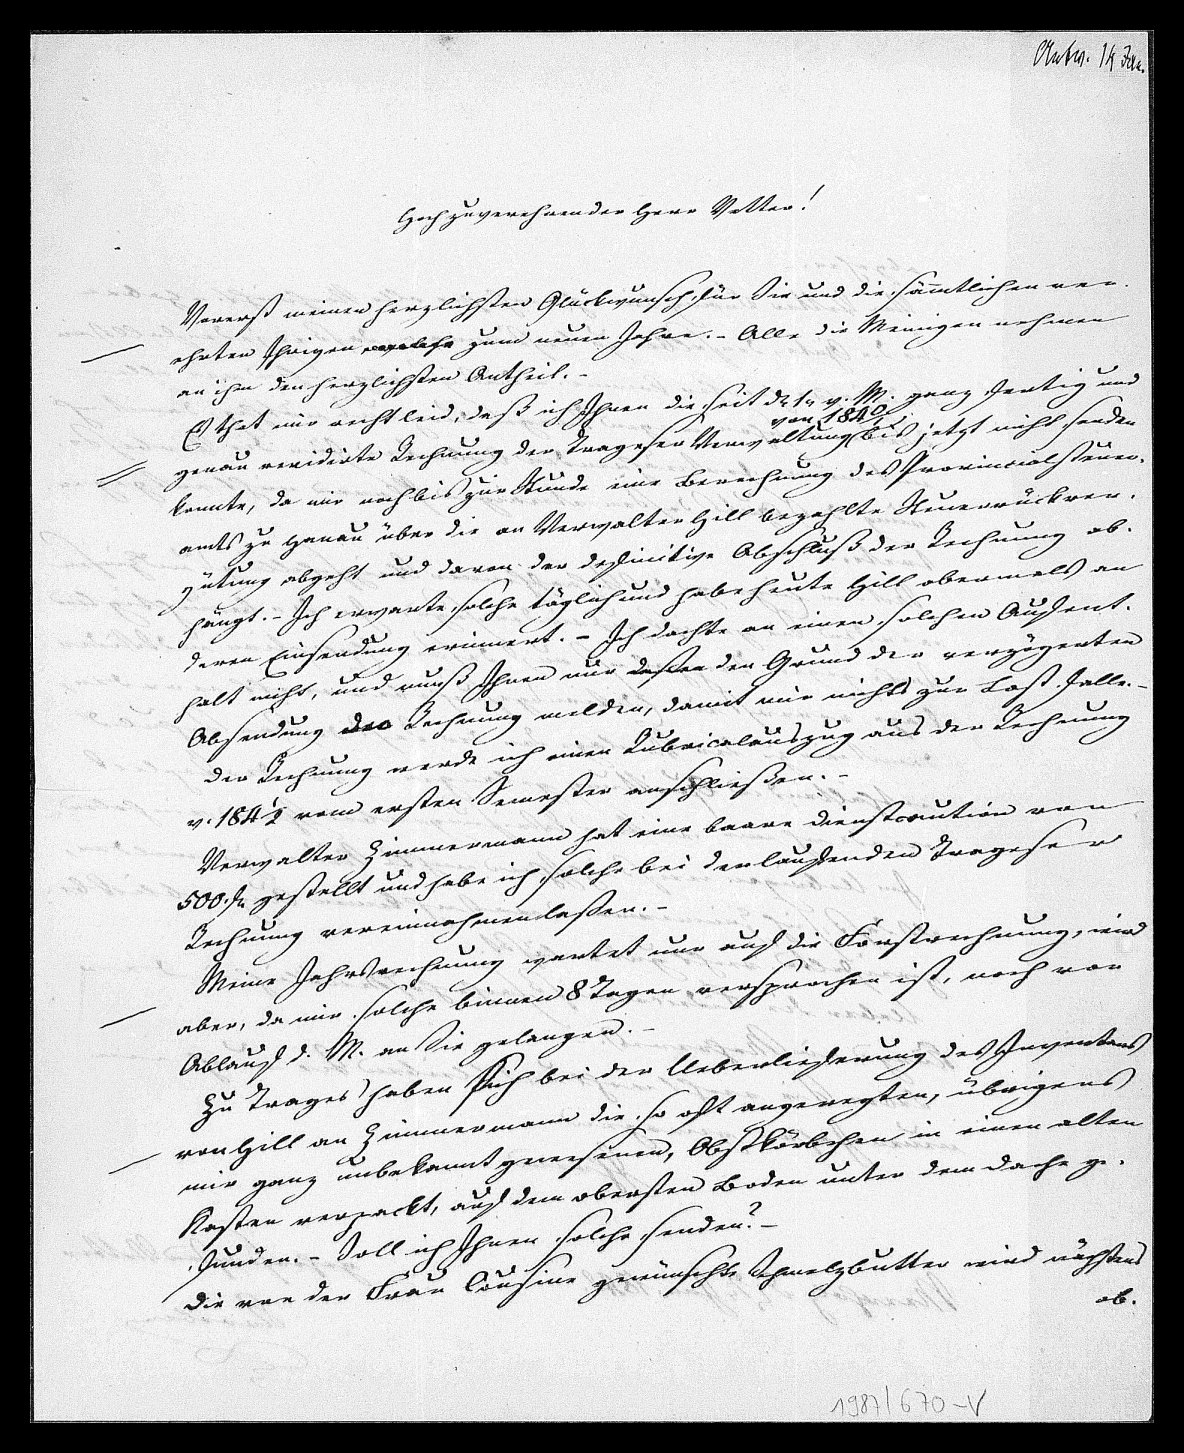 Antw. 14 Jan.
Hochzuverehrender Herr Vetter!
Vorerst meinen herzlichsten Glückwunsch für Sie und die sämtlichen ver-
ehrten Ihrigen zum neuen Jahre. – Alle die Meinigen nehmen
an ihm den herzlichsten Antheil. –
Es that mir recht leid, daß ich Ihnen die seit d. 1. v. M. ganz fertig und
genau revidirte Rechnung der Trageser Verwaltung von 184 bis jetzt nicht senden
konnte, da mir noch bis zur Stunde eine Berechnung des Provincialsteuer-
amts zu Hanau über die an Verwalter Hill bezahlte Steuerrückver-
gütung abgeht und davon der definitive Abschluß der Rechnung ab-
hängt. – Ich erwarte solche täglich und habe heute Hill abermals an
deren Einsendung erinnert. – Ich dachte an einen solchen Aufent-
halt nicht, und muß Ihnen nur den Grund der verzögerten
Absendung der Rechnung melden, damit mir nichts zur Last falle. –
Der Rechnung werde ich einen Rubricalauszug aus der Rechnung
v. 184½ vom ersten Semester anschließen. –
Verwalter Zimmermann hat eine baare Dienstcaution von
500 f. gestellt und habe ich solche bei der laufenden Trageser
Rechnung vereinnahmen laßen. –
Meine Jahrsrechnung wartet nur auf die Forstrechnung, wird
aber, da mir solche binnen 8 Tagen versprochen ist, noch vor
Ablauf d. M. an Sie gelangen. –
Zu Trages haben sich bei der Ueberlieferung des Inventars
von Hill an Zimmermann die so oft angeregten, übrigens
mir ganz unbekannt gewesenen, Obstkörbchen in einem alten
Kasten verpackt, auf dem obersten Boden unter dem Dache ge-
funden. – Soll ich Ihnen solche senden? –
Die von der Frau Cousine gewünschte Schmelzbutter wird nächstens
ab-
1987/670-V